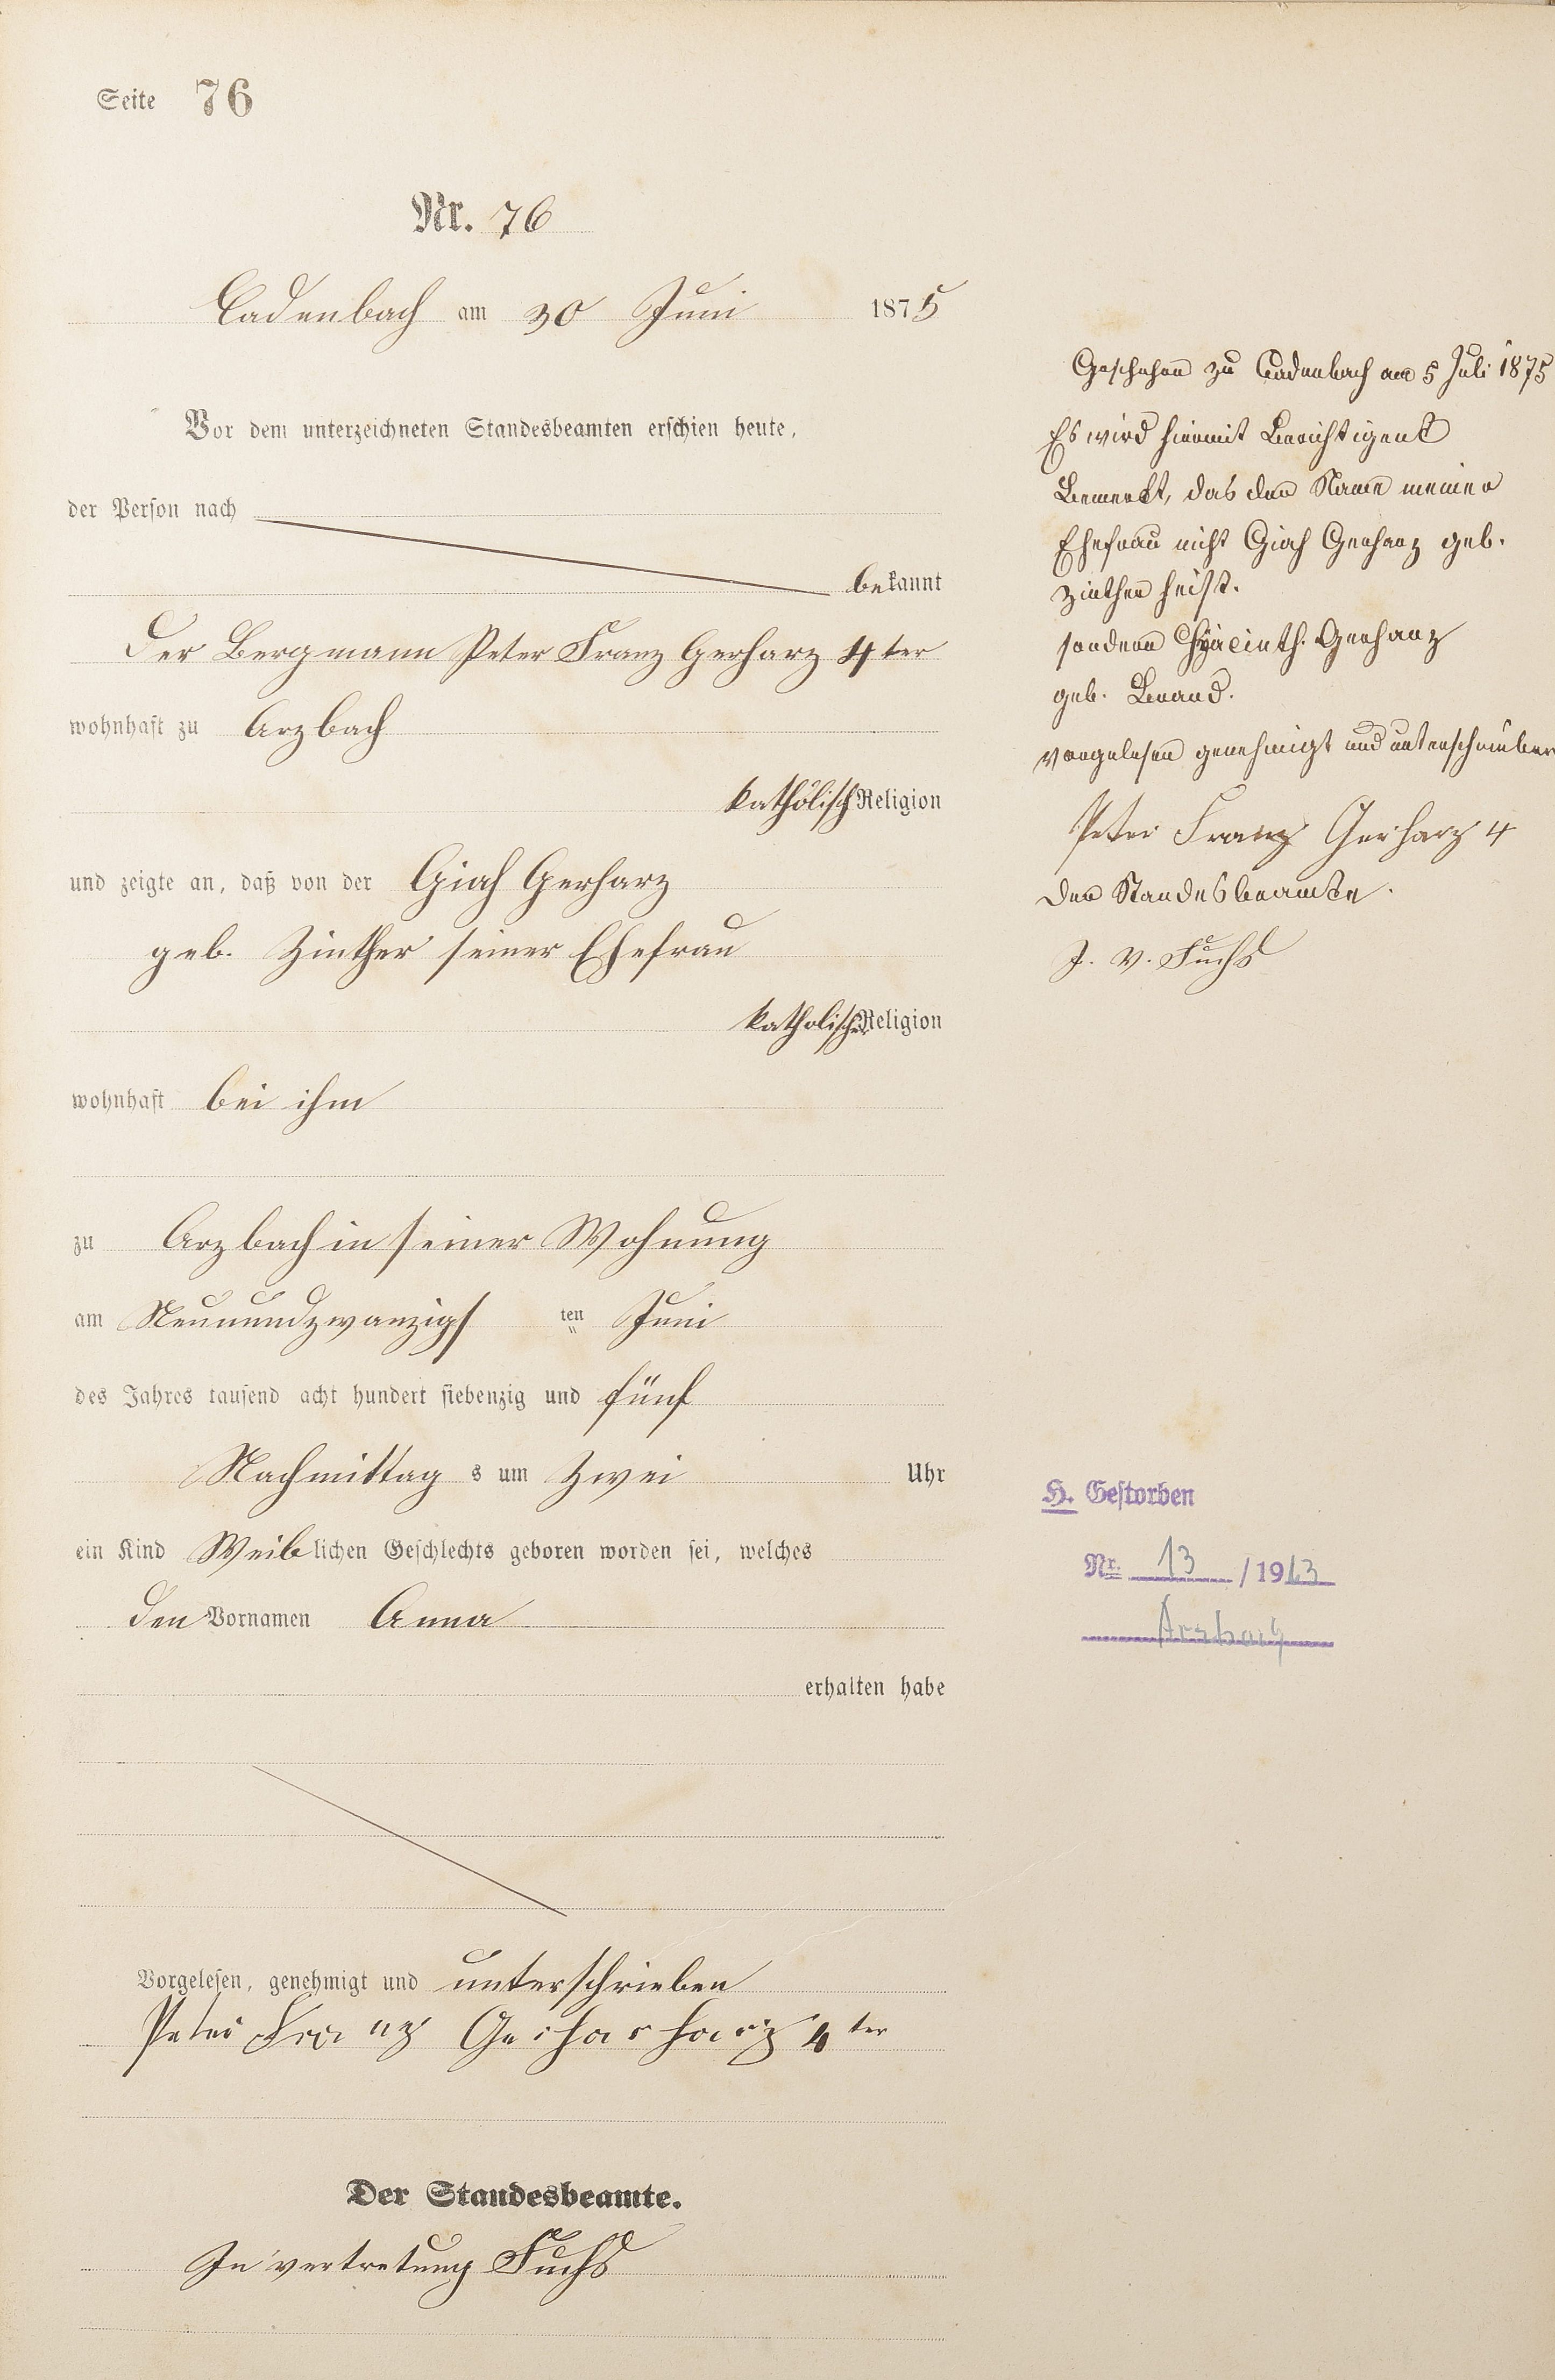 Seite 76
Nr. 76
Cadenbach am 30 Juni 1875
Vor dem unterzeichneten Standesbeamten erschien heute,
der Person nach
bekannt
der Bergmann Peter Franz Gerharz 4ter
wohnhaft zu Arzbach
katholisch Religion
und zeigte an, daß von der Giah Gerharz
geb. Zinther seiner Ehefrau
katholischer Religion
wohnhaft bei ihm
zu Arzbach in seiner Wohnung
am Neunundzwanzigs ten Juni
des Jahres tausend acht hundert siebenzig und fünf
Nachmittag s um Zwei Uhr
ein Kind Weiblichen Geschlechts geboren worden sei, welches
den Vornamen Anna
erhalten habe
Vorgelesen, genehmigt und unterschrieben
Peter Franz Gerharharz 4ter
Der Standesbeamte.
In vertretung Fuchs
Geschehen zu Cadenbach am 5 Juli 1875
Es wird hiermit Berichtigent
Bemerkt, das der Name meiner
Ehefrau nicht Giah Gerharz geb.
Zinther heist.
sondern Hyacinth. Gerharz
geb. Brand.
vorgelesen genehmigt und unterschrieben
Peter Franz Gerharz 4
Der Standesbeamte.
J. V. Fuchs
H. Gestorben
Nr. 13 / 1963
Arzbach